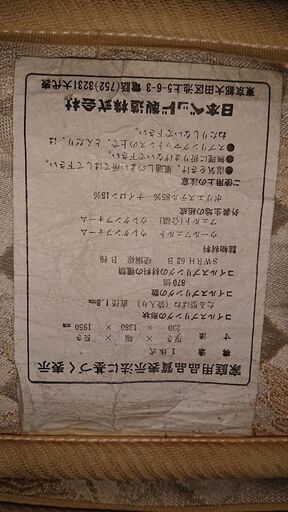 家庭用品品質表示法に基づく表示
構造 1体式
寸法 厚さ × 幅 × 長さ
230 × 1380 × 1950 mm
コイルスプリングの形状
たる型ばね(袋入り) 直径1.8mm
コイルスプリングの数
870個
コイルスプリングの材料の種類
SWRH62B 硬鋼線 B種
詰物材料
ウールフェルト ウレタンフォーム
フェルト(合繊) ウレタンフォーム
外装生地の組成
ポリエステル85% ナイロン15%
ご使用上の注意
●湿気をさけ、風通しのよい所でほして下さい。
●無理に折りまげないで下さい。
●スプリングマットレスの上で、とんだり、はねたりしないで下さい。
日本ベッド製造株式会社
東京都大田区池上5-6-3 電話(752)3231大代表